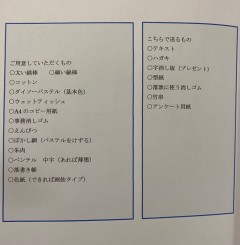 ご用意していただくもの
○太い綿棒　○細い綿棒
○コットン
○ダイソーパステル（基本色）
○ウェットティッシュ
○A4のコピー用紙
○事務消しゴム
○えんぴつ
○ぼかし網（パステルをけずる）
○朱肉
○ペンテル　中字（あれば薄墨）
○落書き帳
○色紙（できれば画仙タイプ）
こちらで送るもの
○テキスト
○ハガキ
○字消し板（プレゼント）
○型紙
○落款に使う消しゴム
○竹串
○アンケート用紙